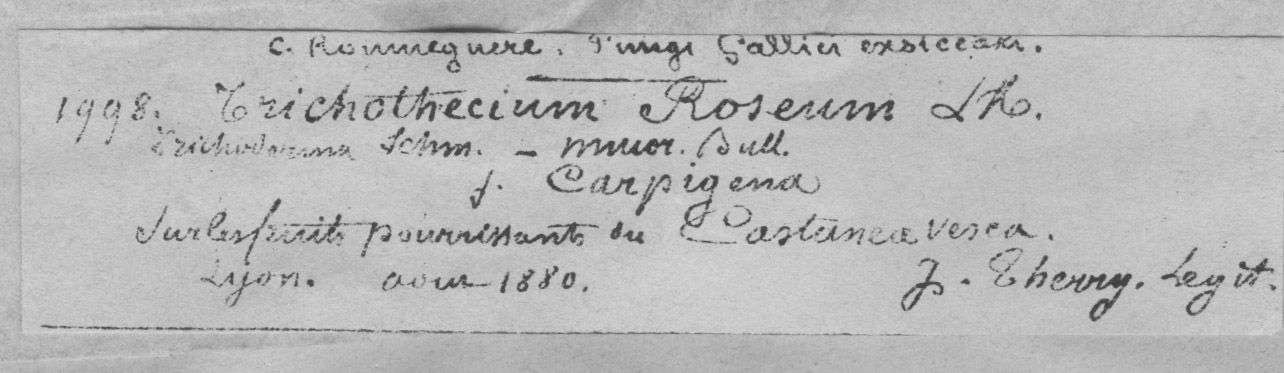 C. Roumeguere. Fungi Gallici exsiccati.
1998. Trichothecium Roseum LK.
Trichoderma Schm. – mucor. Bull.
f. Carpigena
Sur les fruits pourrissants du Castanea vesca.
Lyon. aout 1880. J. Therry. Legit.